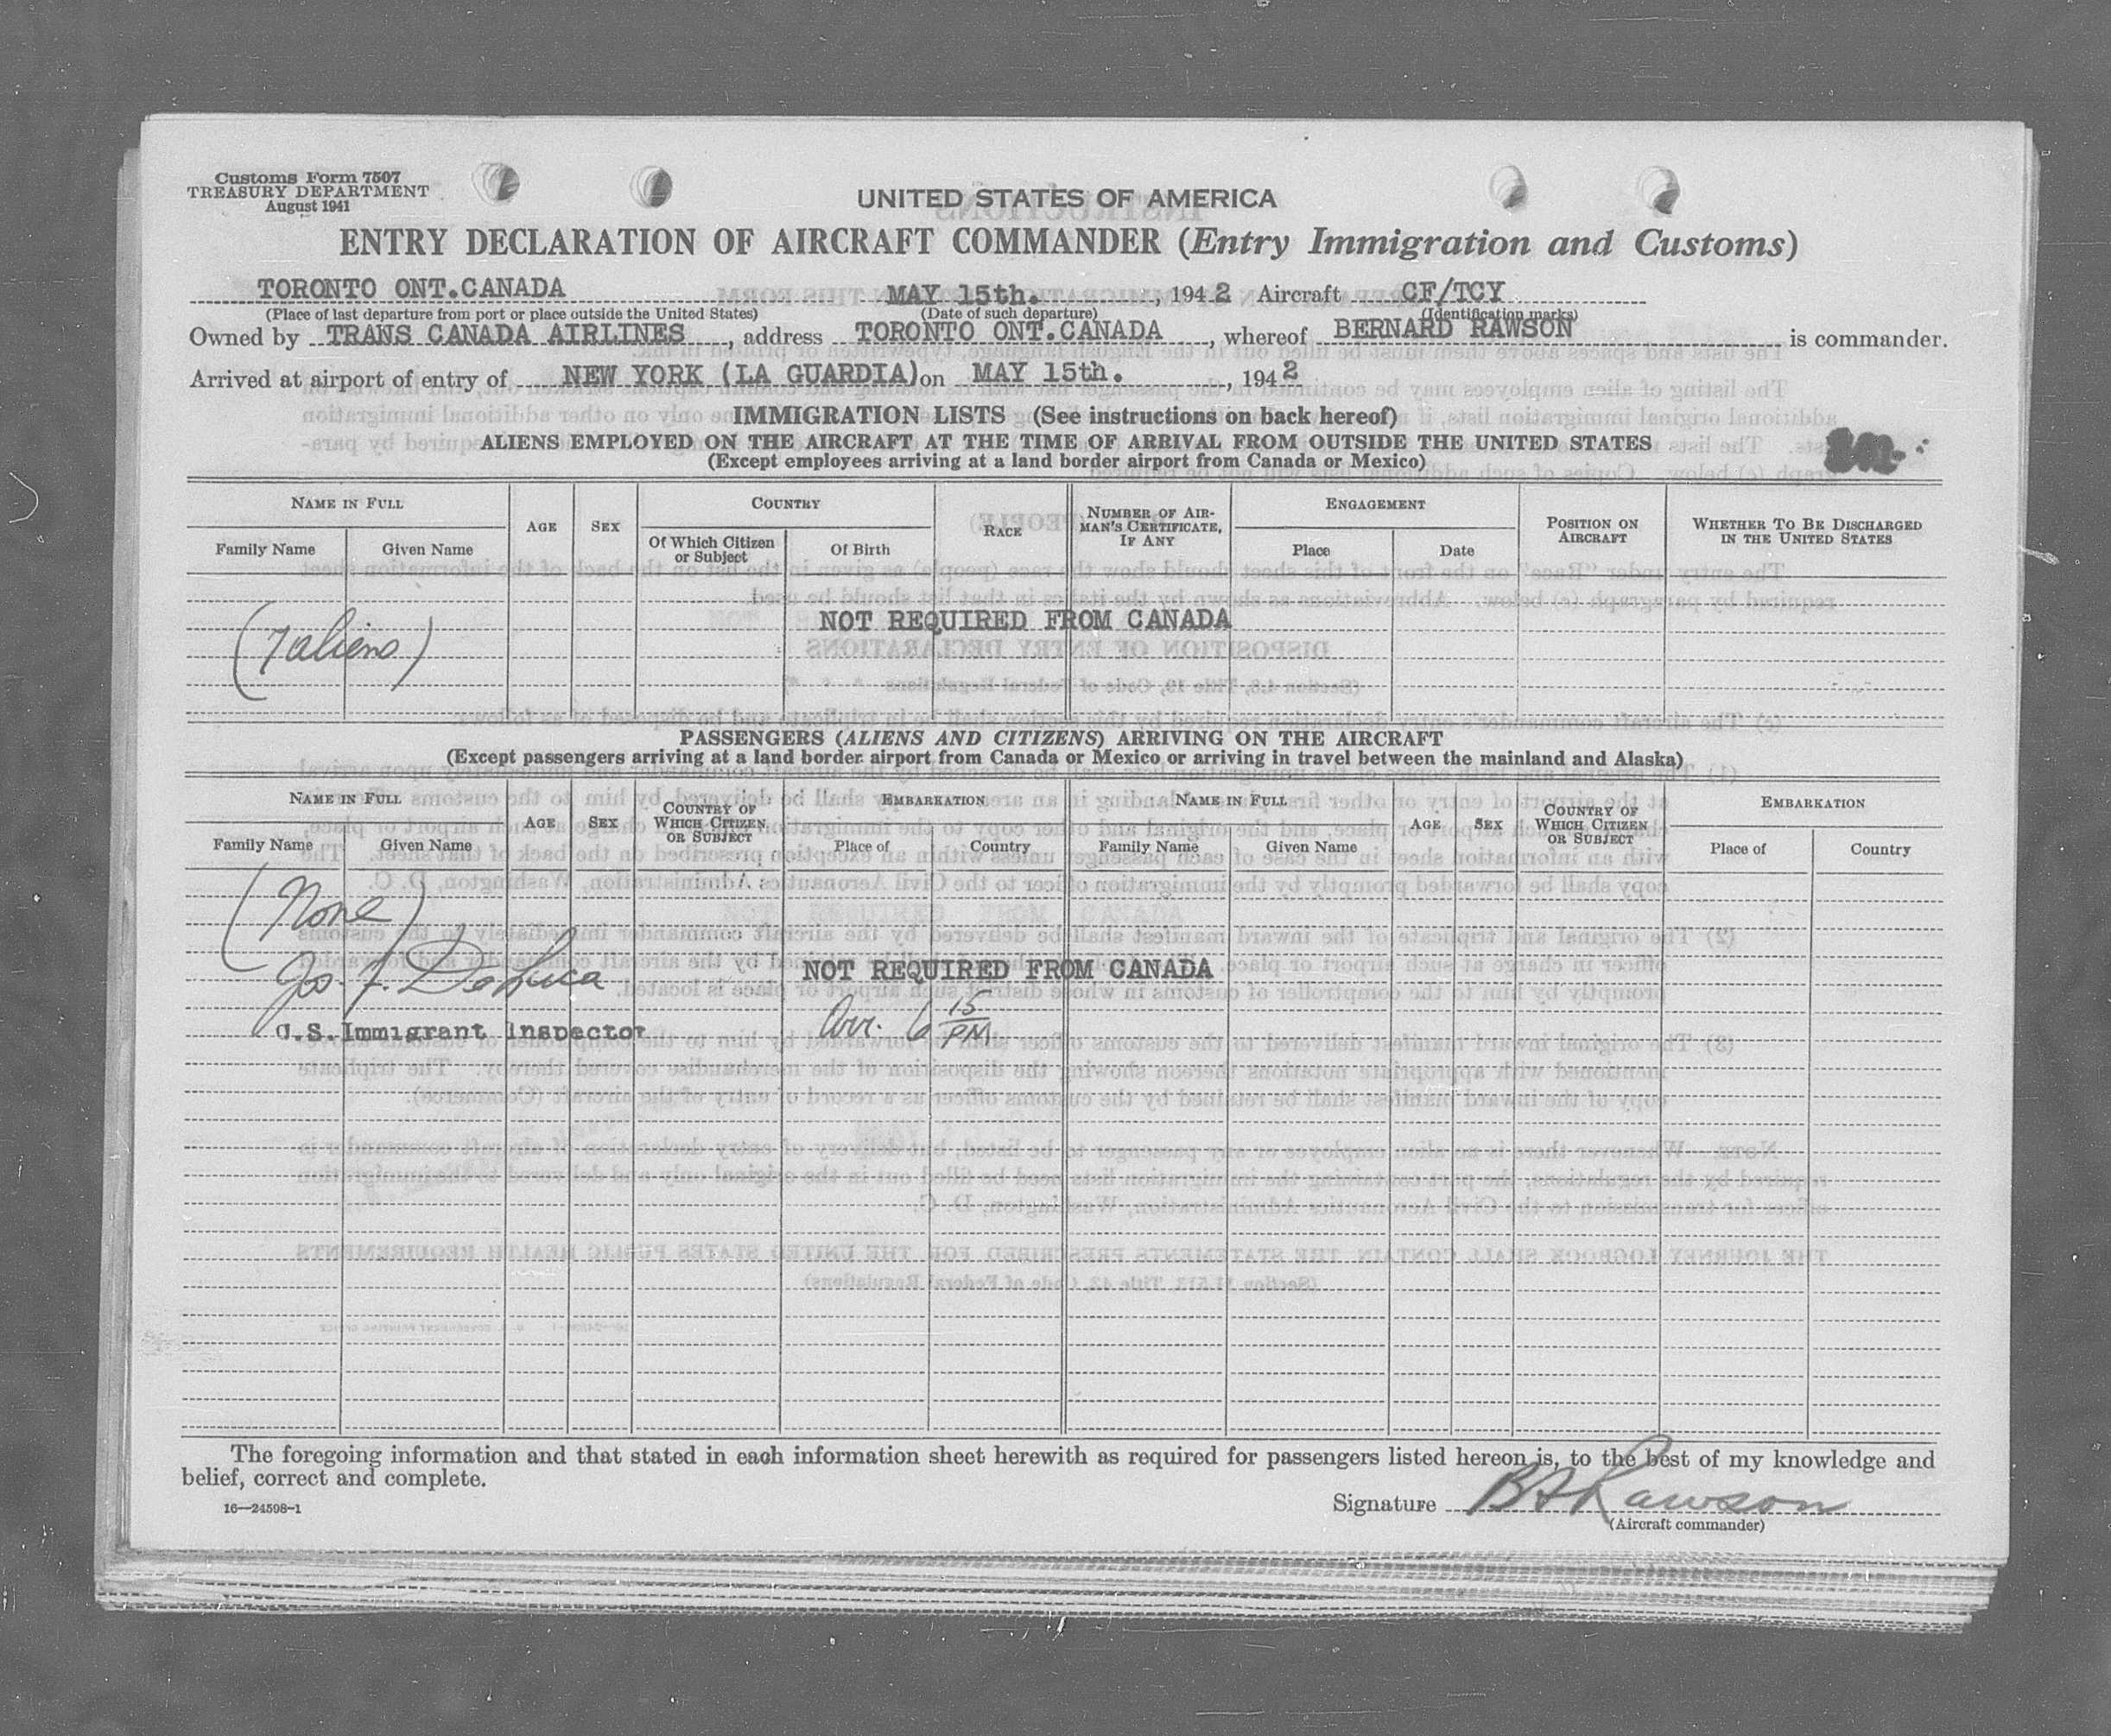 Customs Form 7507
TREASURY DEPARTMENT
August 1941
UNITED STATES OF AMERICA
ENTRY DECLARATION OF AIRCRAFT COMMANDER (Entry Immigration and Customs)
TORONTO ONT.CANADA MAY 15th. , 1942 Aircraft CF/TCY
(Place of last departure from port or place outside the United States) (Date of such departure) (Identification marks)
Owned by TRANS CANADA AIRLINES, address TORONTO ONT.CANADA, whereof BERNARD RAWSON is commander.
Arrived at airport of entry of NEW YORK (LA GUARDIA) on MAY 15th. , 1942
IMMIGRATION LISTS (See instructions on back hereof)
ALIENS EMPLOYED ON THE AIRCRAFT AT THE TIME OF ARRIVAL FROM OUTSIDE THE UNITED STATES
(Except employees arriving at a land border airport from Canada or Mexico)
NAME IN FULL AGE SEX COUNTRY RACE NUMBER OF AIRMAN'S CERTIFICATE, IF ANY ENGAGEMENT POSITION ON AIRCRAFT WHETHER TO BE DISCHARGED IN THE UNITED STATES
Family Name Given Name Of Which Citizen or Subject Of Birth Place Date
NOT REQUIRED FROM CANADA
(7 aliens)
PASSENGERS (ALIENS AND CITIZENS) ARRIVING ON THE AIRCRAFT
(Except passengers arriving at a land border airport from Canada or Mexico or arriving in travel between the mainland and Alaska)
NAME IN FULL AGE SEX COUNTRY OF WHICH CITIZEN OR SUBJECT EMBARKATION NAME IN FULL AGE SEX COUNTRY OF WHICH CITIZEN OR SUBJECT EMBARKATION
Family Name Given Name Place of Country Family Name Given Name Place of Country
(None)
Jos. F. DeLuca NOT REQUIRED FROM CANADA
U.S. Immigrant Inspector Arr. 6 15 PM
The foregoing information and that stated in each information sheet herewith as required for passengers listed hereon is, to the best of my knowledge and
belief, correct and complete.
16—24598-1
Signature B A Rawson
(Aircraft commander)